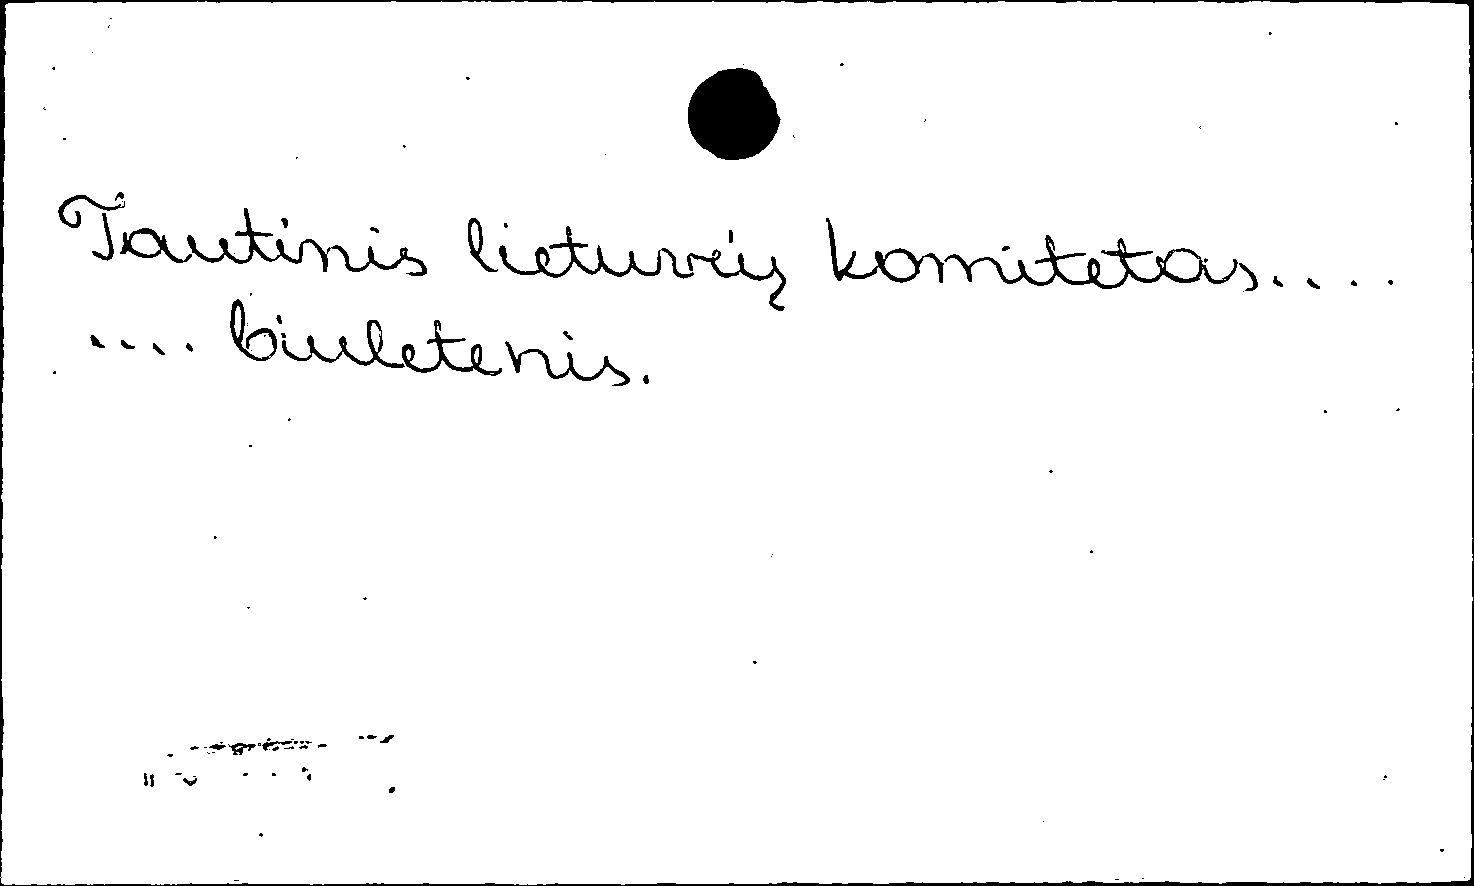 Tautinis lietuvių komitetas....
.... biuletenis.